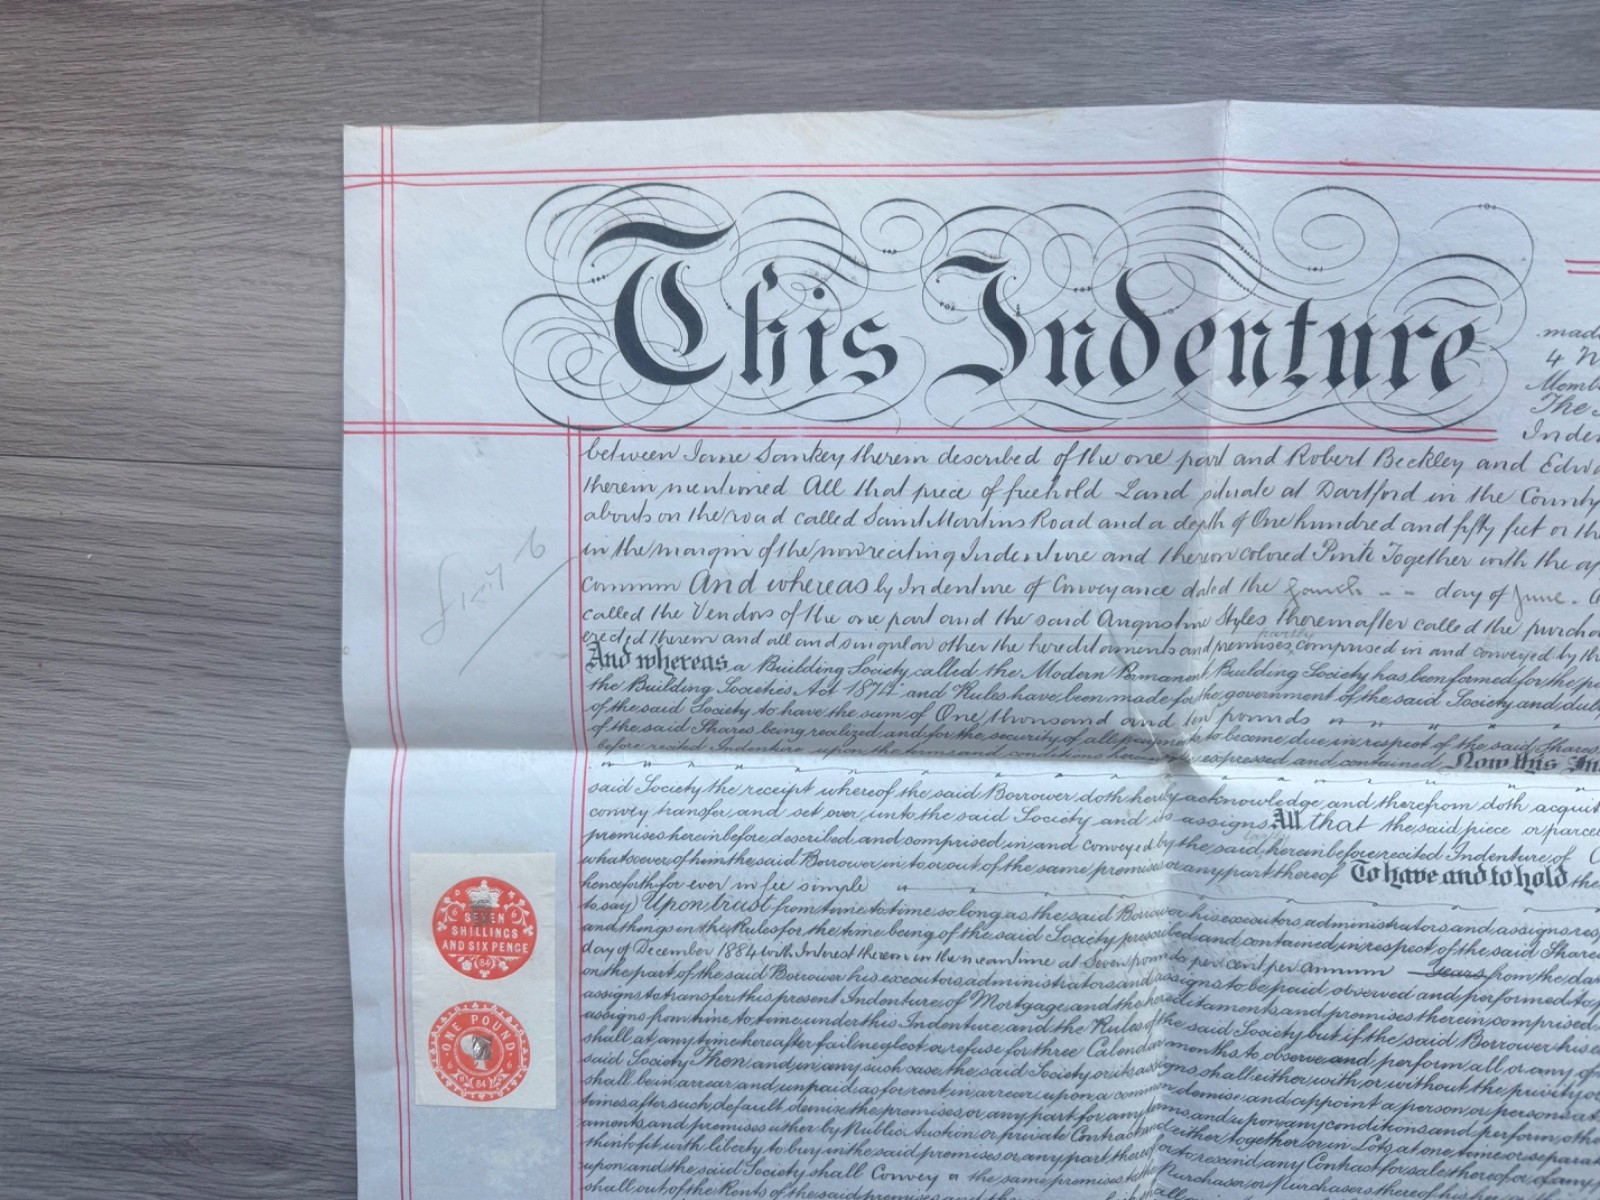 This Indenture
made
4
Memb
The
Inden
between Jane Sankey therein described of the one part and Robert Beckley and Edwa
therein mentioned All that piece of freehold Land situate at Dartford in the County
abouts on the road called Saint Martins Road and a depth of One hundred and fifty feet or the
in the margin of the now reciting Indenture and thereon colored Pink Together with the ap
common And whereas by Indenture of Conveyance dated the fourth day of June
called the Vendors of the one part and the said Augustine Styles thereinafter called the purcha
partly
erected thereon and all and singular other the hereditaments and premises comprised in and conveyed by th
And whereas a Building Society called the Modern Permanent Building Society has been formed for the pu
the Building Societies Act 1874 and Rules have been made for the government of the said Society and duly
of the said Society to have the sum of One thousand and ten pounds
of the said Shares being realized and for the security of all payments to become due in respect of the said Shares
before recited Indenture upon the terms and conditions hereinafter expressed and contained Now this In
said Society the receipt whereof the said Borrower doth hereby acknowledge and therefrom doth acquit
convey transfer and set over unto the said Society and its assigns All that the said piece or parcel
partly
premises hereinbefore described and comprised in and conveyed by the said hereinbefore recited Indenture of
whatsoever of him the said Borrower in to or out of the same premises or any part thereof To have and to hold the
henceforth for ever in fee simple
to say) Upon trust from time to time so long as the said Borrower his executors administrators and assigns
and things in the Rules for the time being of the said Society prescribed and contained in respect of the said Share
day of December 1884 with Interest thereon in the meantime at Seven pounds per cent per annum Years from the da
on the part of the said Borrower his executors administrators and assigns to be paid observed and performed to
assigns to transfer this present Indenture of Mortgage and the hereditaments and premises therein comprised
assigns from time to time under this Indenture and the Rules of the said Society but if the said Borrower his
shall at any time hereafter fail neglect or refuse for three Calendar months to observe and perform all or any of
said Society Then and in any such case the said Society or its assigns shall either with or without the privity or
shall be in arrear and unpaid as for rent in arrear upon a common demise and appoint a person or persons
times after such default demise the premises or any part for any terms and upon any conditions and perform othe
aments and premises either by Public Auction or private Contract and either together or in Lots at one time or separat
think fit with liberty to buy in the said premises or any part thereof or to rescind any Contract for sale thereof or of any
upon and the said Society shall Convey the same premises to the Purchaser or Purchasers thereof
shall out of the Rents of the said premises and
SEVEN
SHILLINGS
AND SIX PENCE
6 6
84
ONE POUND
6 6
84